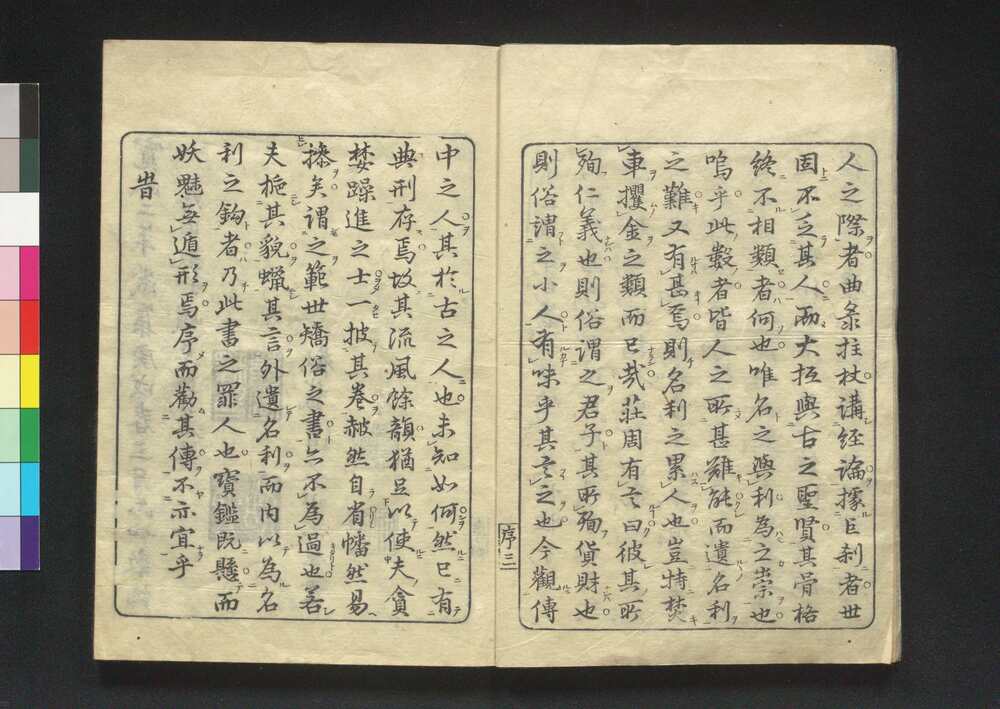 人之際者曲彔拄杖講經論據巨刹者世
固不乏其人而大抵與古之聖賢其骨格
終不相類者何也唯名之與利為之崇也
嗚乎此數者皆人之所甚難能而遺名利
之難又有甚焉則名利之累人也豈特焚
車攫金之類而已哉莊周有言曰彼其所
殉仁義也則俗謂之君子其所殉貨財也
則俗謂之小人有味乎其言之也今觀傳
序三
中之人其於古之人也未知如何然已有
典刑存焉故其流風餘韻猶足以使夫貪
婪躁進之士一披其卷赧然自省幡然易
操矣謂之範世矯俗之書亦不為過也若
夫梔其貌蠟其言外遺名利而內以為名
利之鉤者乃此書之罪人也寶鑑既懸而
妖魅無遁形焉序而勸其傳不亦宜乎
旹